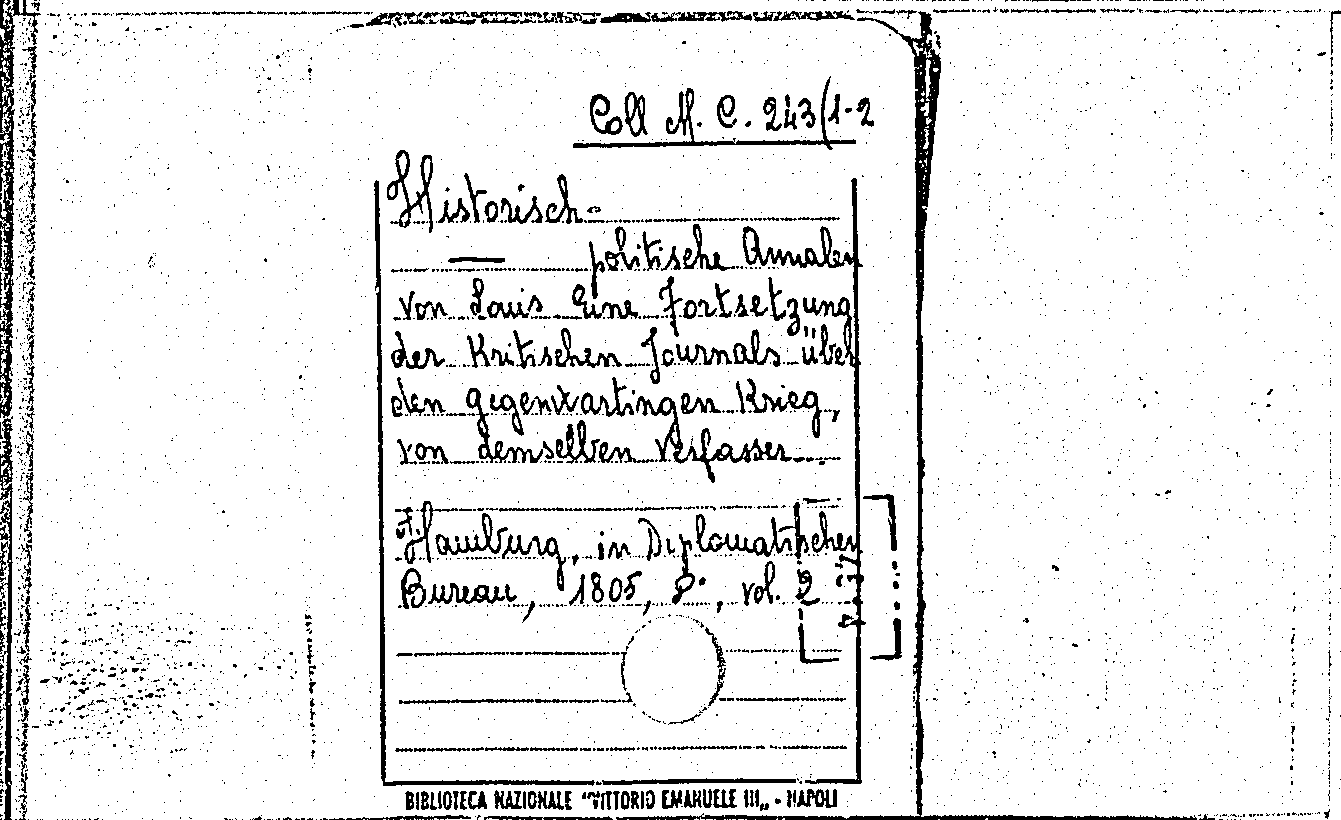 Coll M. C. 243(1-2
Historisch-
— politische Annalen
von Louis Eine Fortsetzung
der Kritischen Journals über
den gegenwartingen Krieg,
von demselben Verfasser...
Hamburg, in Diplomatischen
Bureau, 1805, 8°, vol. 2
BIBLIOTECA NAZIONALE "VITTORIO EMANUELE III„ - NAPOLI